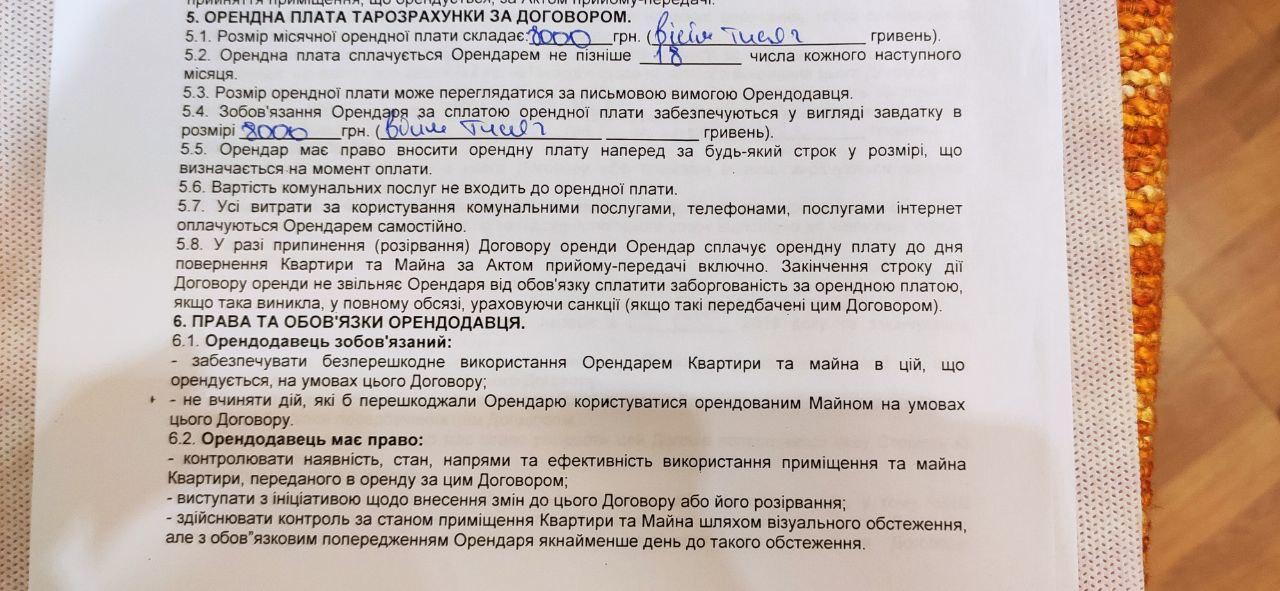 прийняття приміщення, що орендується, за Актом прийому-передачі.
5. ОРЕНДНА ПЛАТА ТАРОЗРАХУНКИ ЗА ДОГОВОРОМ.
5.1. Розмір місячної орендної плати складає: 8000 грн. (вісім тисяч гривень).
5.2. Орендна плата сплачується Орендарем не пізніше 18 числа кожного наступного
місяця.
5.3. Розмір орендної плати може переглядатися за письмовою вимогою Орендодавця.
5.4. Зобов'язання Орендаря за сплатою орендної плати забезпечуються у вигляді завдатку в
розмірі 8000 грн. (вісім тисяч гривень).
5.5. Орендар має право вносити орендну плату наперед за будь-який строк у розмірі, що
визначається на момент оплати.
5.6. Вартість комунальних послуг не входить до орендної плати.
5.7. Усі витрати за користування комунальними послугами, телефонами, послугами інтернет
оплачуються Орендарем самостійно.
5.8. У разі припинення (розірвання) Договору оренди Орендар сплачує орендну плату до дня
повернення Квартири та Майна за Актом прийому-передачі включно. Закінчення строку дії
Договору оренди не звільняє Орендаря від обов'язку сплатити заборгованість за орендною платою,
якщо така виникла, у повному обсязі, ураховуючи санкції (якщо такі передбачені цим Договором).
6. ПРАВА ТА ОБОВ'ЯЗКИ ОРЕНДОДАВЦЯ.
6.1. Орендодавець зобов'язаний:
- забезпечувати безперешкодне використання Орендарем Квартири та майна в цій, що
орендується, на умовах цього Договору;
- не вчиняти дій, які б перешкоджали Орендарю користуватися орендованим Майном на умовах
цього Договору.
6.2. Орендодавець має право:
- контролювати наявність, стан, напрями та ефективність використання приміщення та майна
Квартири, переданого в оренду за цим Договором;
- виступати з ініціативою щодо внесення змін до цього Договору або його розірвання;
- здійснювати контроль за станом приміщення Квартири та Майна шляхом візуального обстеження,
але з обов"язковим попередженням Орендаря якнайменше день до такого обстеження.